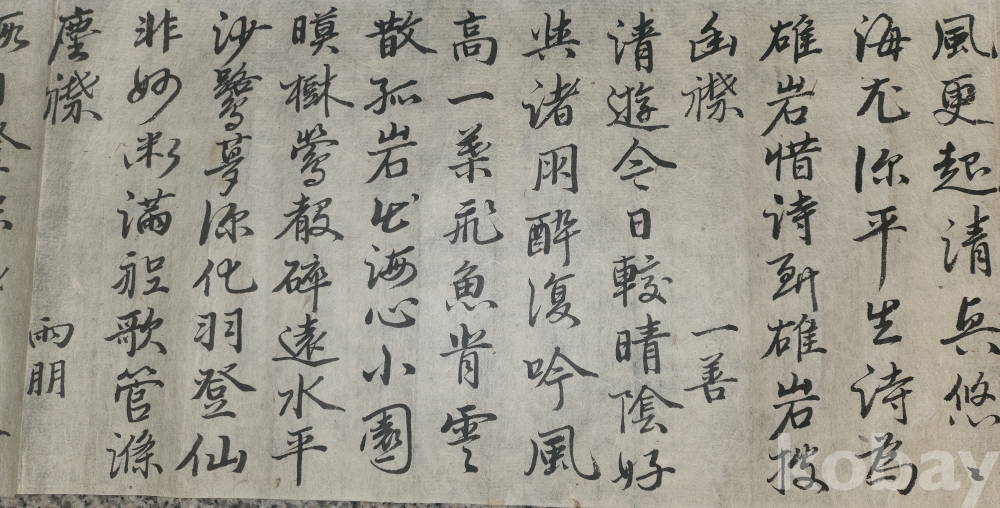 風更起清興悠〻
海尤深平生詩為
雄岩惜詩到雄岩披
幽襟 一善
清遊今日較晴陰好
與諸朋醉復吟風
高一葉飛魚背雲
散孤岩出海心小園
暝樹鶯聲碎遠水平
沙鷺夢深化羽登仙
非妙術滿船歌管滌
塵襟 雨朋
kobay